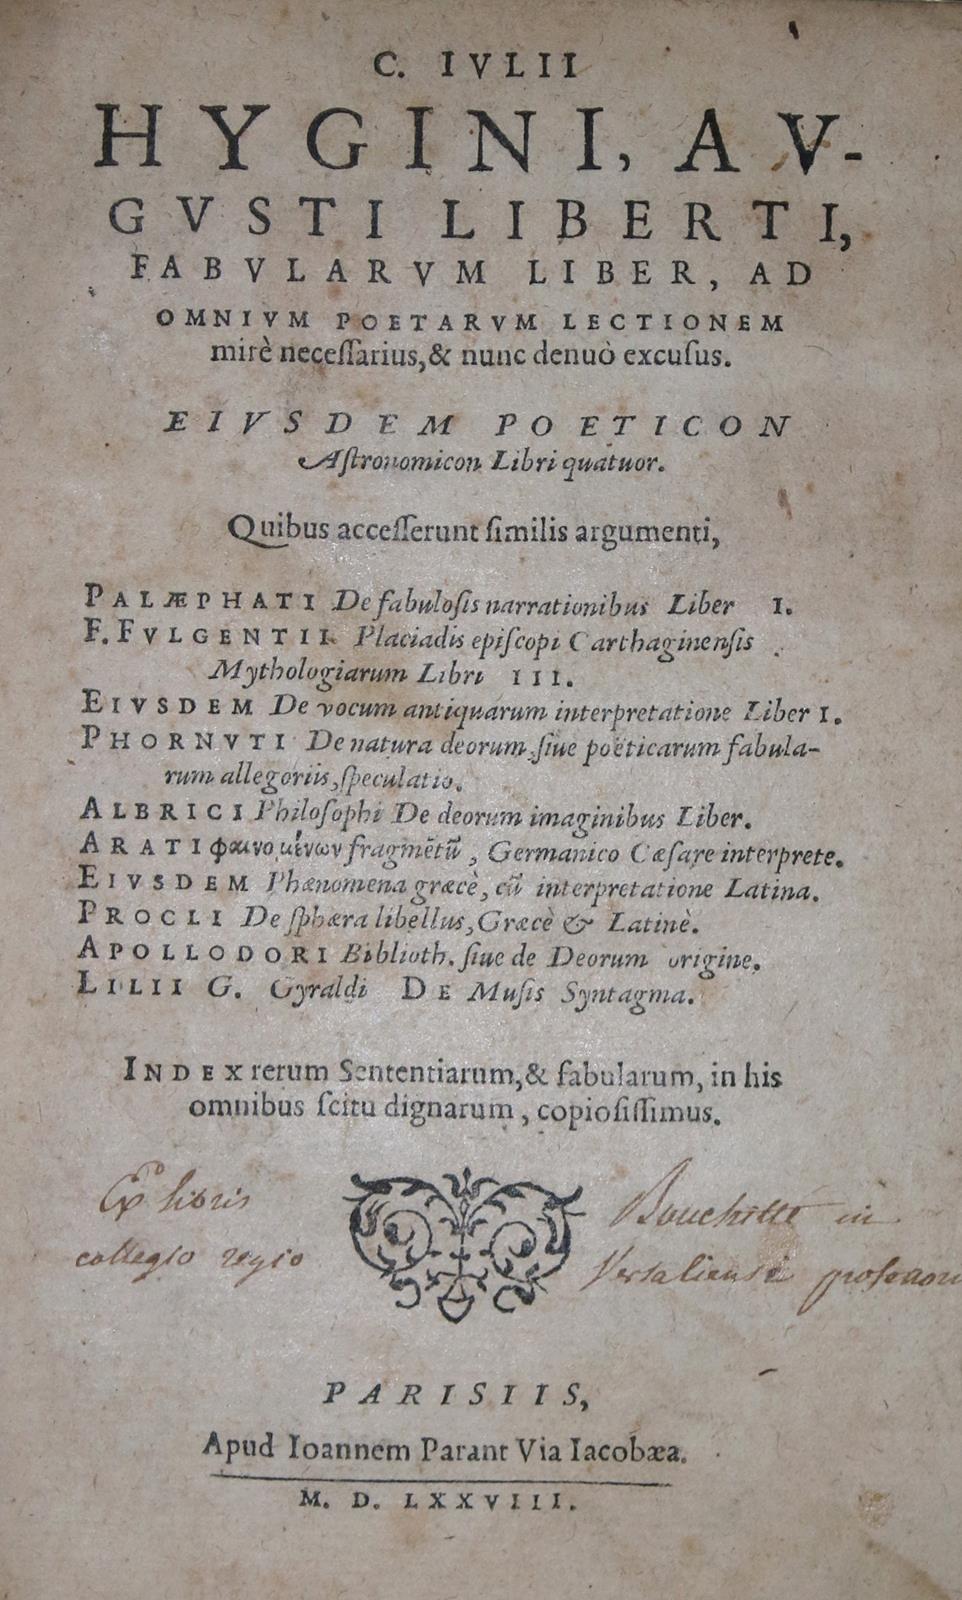 C. IVLII
HYGINI, AV-
GVSTI LIBERTI,
FABVLARVM LIBER, AD
OMNIVM POETARVM LECTIONEM
mirè neceſſarius, & nunc denuò excuſus.
EIVSDEM POETICON
Aſtronomicon Libri quatuor.
Quibus acceſſerunt ſimilis argumenti,
PALÆPHATI De fabuloſis narrationibus Liber I.
F. FVLGENTII Placiadis epiſcopi Carthaginenſis
Mythologiarum Libri III.
EIVSDEM De vocum antiquarum interpretatione Liber I.
PHORNVTI De natura deorum, ſiue poëticarum fabula-
rum allegoriis, ſpeculatio.
ALBRICI Philoſophi De deorum imaginibus Liber.
ARATI φαινομένων fragmẽtũ, Germanico Cæſare interprete.
EIVSDEM Phænomena græcè, cũ interpretatione Latina.
PROCLI De ſphæra libellus, Græcè & Latinè.
APOLLODORI Biblioth. ſiue de Deorum origine.
LILII G. Gyraldi DE Muſis Syntagma.
INDEX rerum Sententiarum, & fabularum, in his
omnibus ſcitu dignarum, copioſiſſimus.
Ex libris Bouchitté in
collegio regio Versaliensi professoris
PARISIIS,
Apud Ioannem Parant Via Iacobæa.
M. D. LXXVIII.